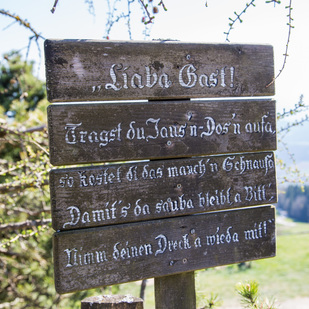 „Liaba Gast!
Tragst du Jaus'n-Dos'n aufa,
so kostet di das manch'n Schnaufa
Damit's da sauba bleibt a Bitt':
Nimm deinen Dreck a wieda mitt!